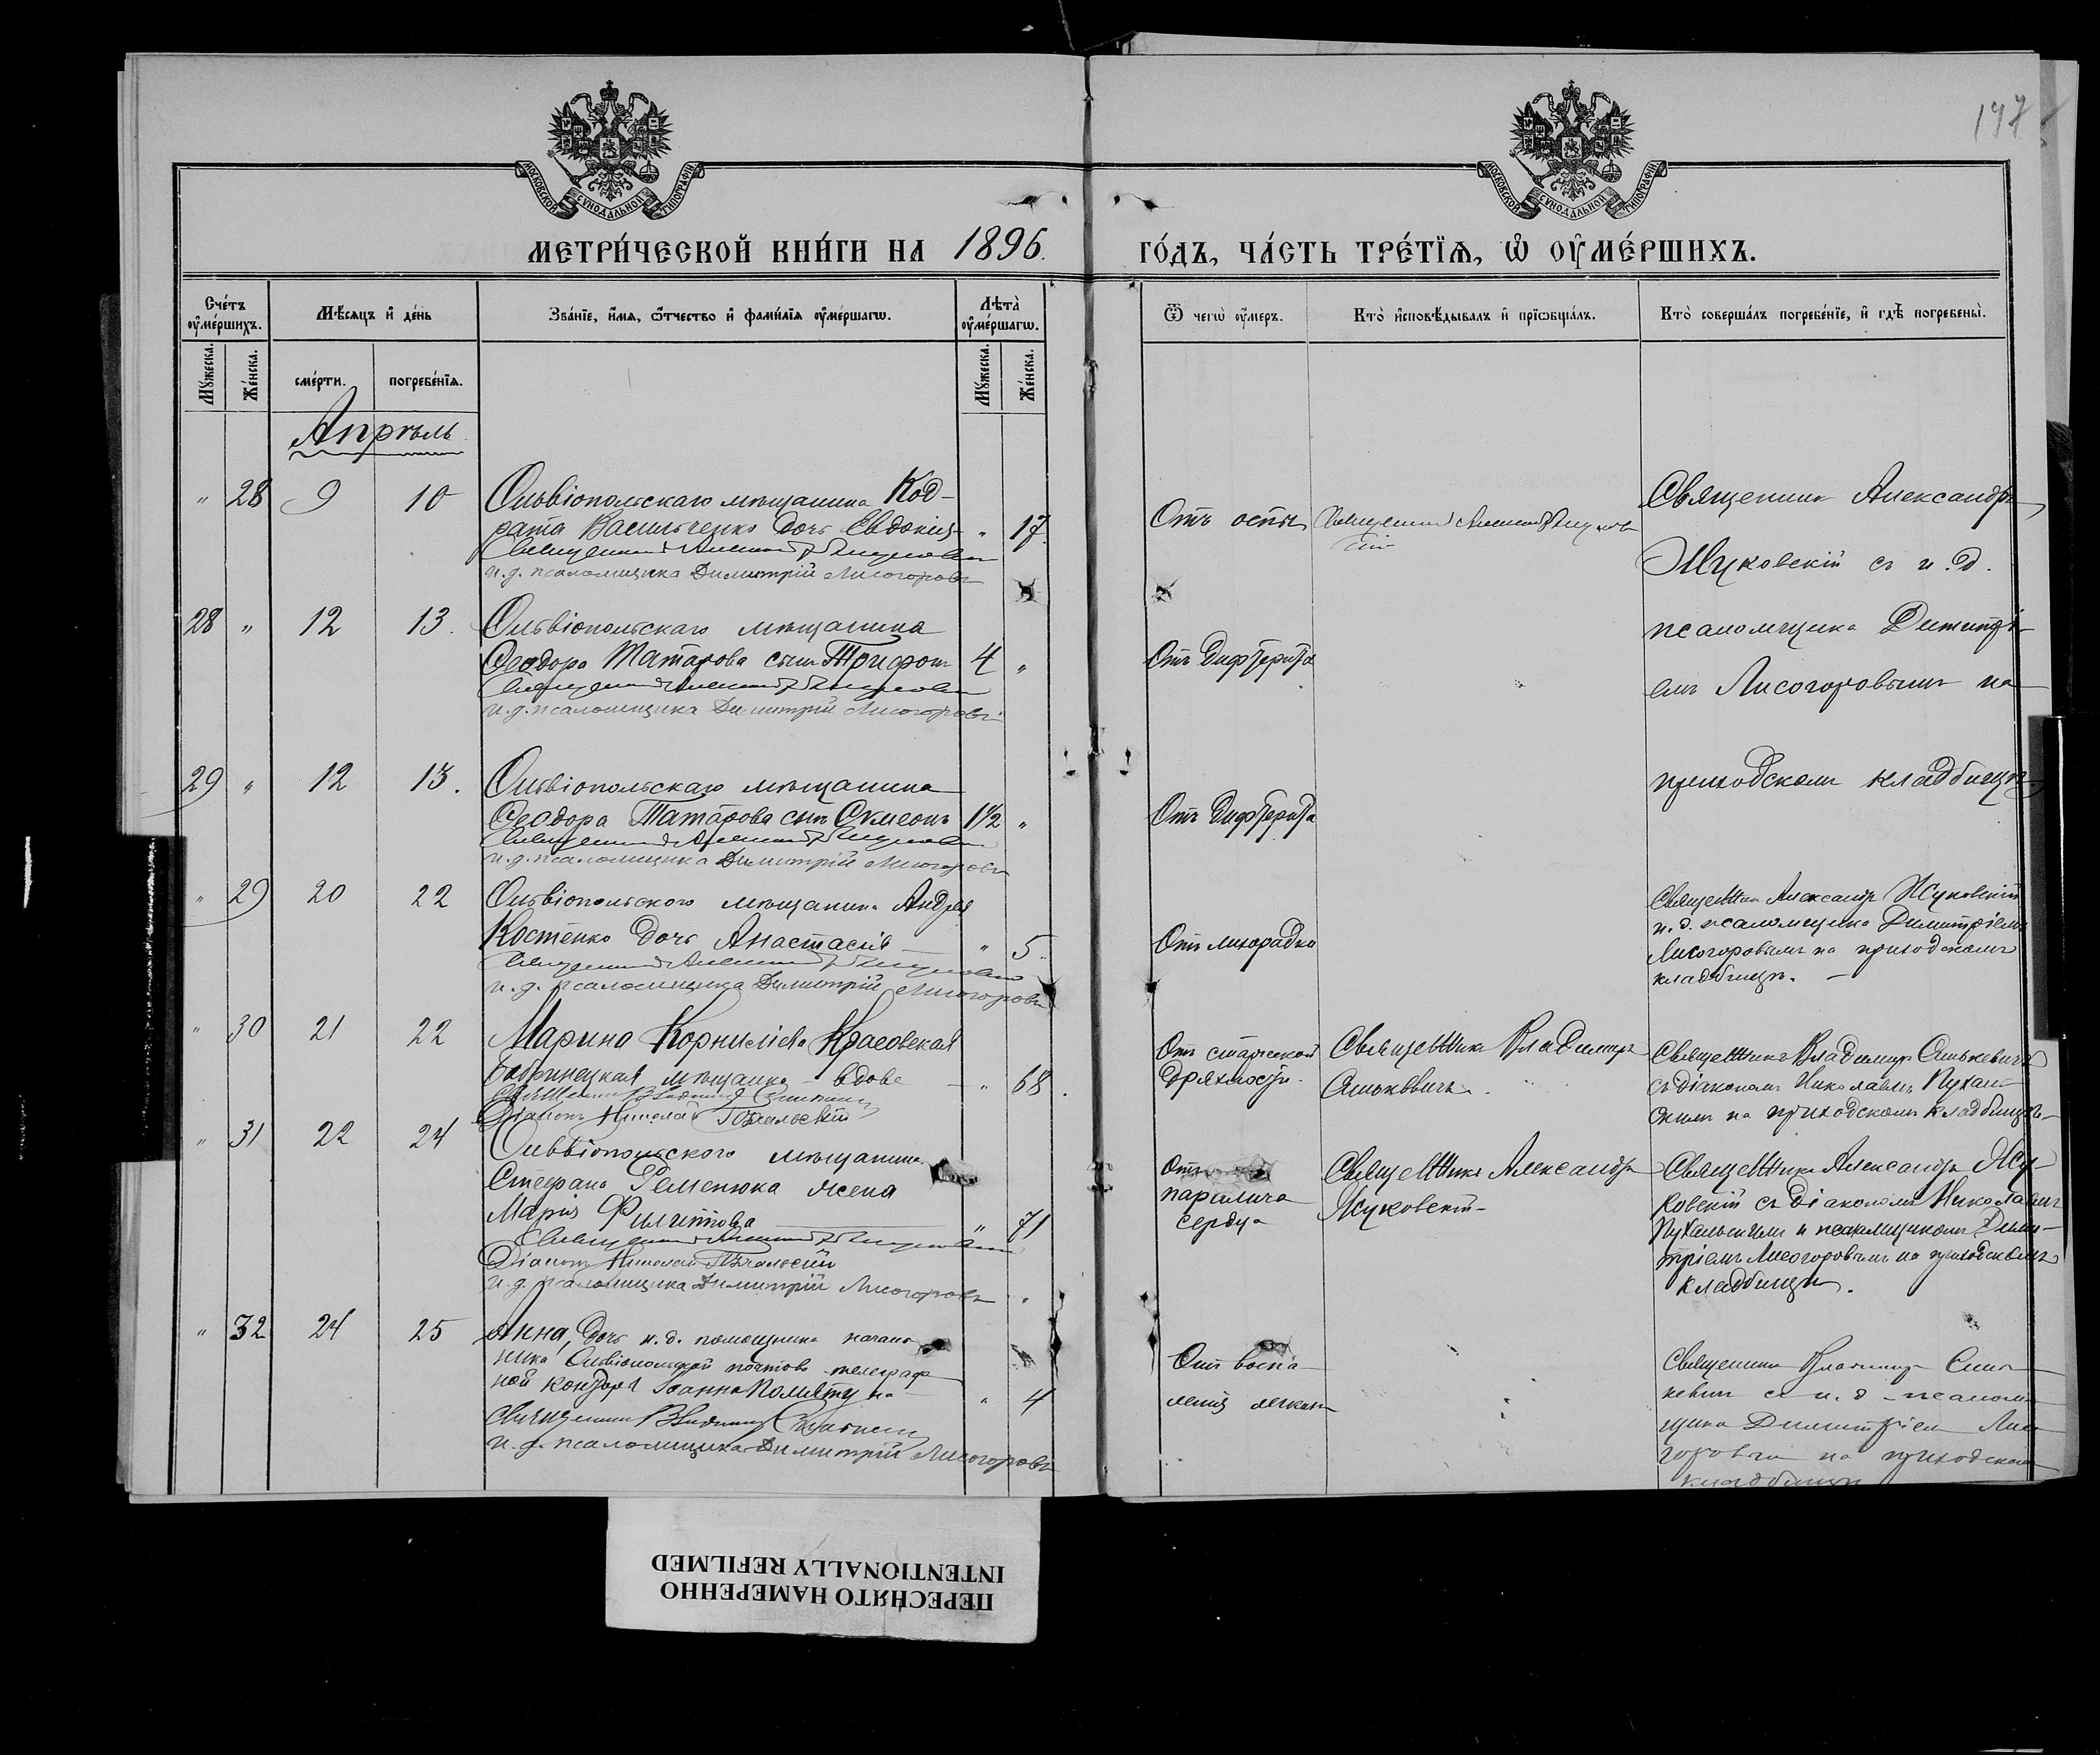 197
МОСКОВСКОЙ СУНОДАЛЬНОЙ ТИПОГРАФІИ
МОСКОВСКОЙ СУНОДАЛЬНОЙ ТИПОГРАФІИ
МЕТРИ́ЧЕСКОЙ КНИ́ГИ НА 1896.
ГО́ДЪ, ЧА́СТЬ ТРЕ́ТЇѦ, Ѡ҆ ОУ҆МЕ́РШИХЪ.
Сче́тъ оу҆ме́ршихъ.
Мѣ́сѧцъ и҆ де́нь
Зва́нїе, и҆́мѧ, ѻ҆́тчество и҆ фами́лїѧ оу҆ме́ршагѡ.
Лѣ́та оу҆ме́ршагѡ.
Ѿ чегѡ̀ оу҆́меръ.
Кто̀ и҆сповѣ́дывалъ и҆ прїѡбща́лъ.
Кто̀ соверша́лъ погребе́нїе, и҆ гдѣ̀ погребены̀.
Мꙋ́жеска. Же́нска. сме́рти. погребе́нїѧ. Мꙋ́жеска. Же́нска.
Апрѣль
" 28 9 10 Ольвіопольскаго мѣщанина Код-
рата Васильченко дочь Евдокія " 17
Священникъ Александръ
и.д. псаломщика Димитрій Лисогоровъ
Отъ оспы
Священникъ Александръ
Жуковскій съ и.д.
псаломщика Димитрі-
емъ Лисогоровымъ на
приходскомъ кладбищѣ.
28 " 12 13. Ольвіопольскаго мѣщанина
Ѳеодора Татарова сынъ Трифонъ 4 "
Священникъ Александръ
и.д. псаломщика Димитрій Лисогоровъ
Отъ дифтерита
29 " 12 13. Ольвіопольскаго мѣщанина
Ѳеодора Татарова сынъ Сѵмеонъ 1½ "
Священникъ Александръ
и.д. псаломщика Димитрій Лисогоровъ
Отъ дифтерита
" 29 20 22 Ольвіопольского мѣщанина Андрея
Костенко дочь Анастасія " 5.
Священникъ Александръ
и.д. псаломщика Димитрій Лисогоровъ
Отъ лихорадки
Священникъ Александръ Жуковскій
и.д. псаломщика Димитріемъ
Лисогоровымъ на приходскомъ
кладбищѣ.
" 30 21 22 Марина Корниліева Красовская
Бобринецкая мѣщанка - вдова " 68.
Священникъ Владимиръ
Діаконъ Николай
Отъ старческой
дряхлости.
Священникъ Владимиръ
Священникъ Владимиръ
съ діакономъ Николаемъ Пухаль-
скимъ на приходскомъ кладбищѣ
" 31 22 24 Ольвіопольского мѣщанина
Стефана Гаменюка жена
Марія Филиппова " 71
Священникъ Александръ
Діаконъ Николай
и.д. псаломщика Димитрій Лисогоровъ
Отъ
паралича
сердца
Священникъ Александръ
Жуковскій
Священникъ Александръ Жу-
ковскій съ діакономъ Николаемъ
Пухальскимъ и псаломщикомъ Дими-
тріемъ Лисогоровымъ на приходскомъ
кладбищѣ.
" 32 24 25 Анна, дочь и.д. помощника началь-
ника Ольвіопольской почтово-телеграф-
ной конторы Іоанна " 4
Священникъ Владимиръ
и.д. псаломщика Димитрій Лисогоровъ
Отъ воспа-
ленія легкихъ
Священникъ Владимиръ
съ и.д. псалом-
щика Димитріемъ Лисо-
горовымъ на приходскомъ
кладбищѣ
ПЕРЕСНЯТО НАМЕРЕННО
INTENTIONALLY REFILMED